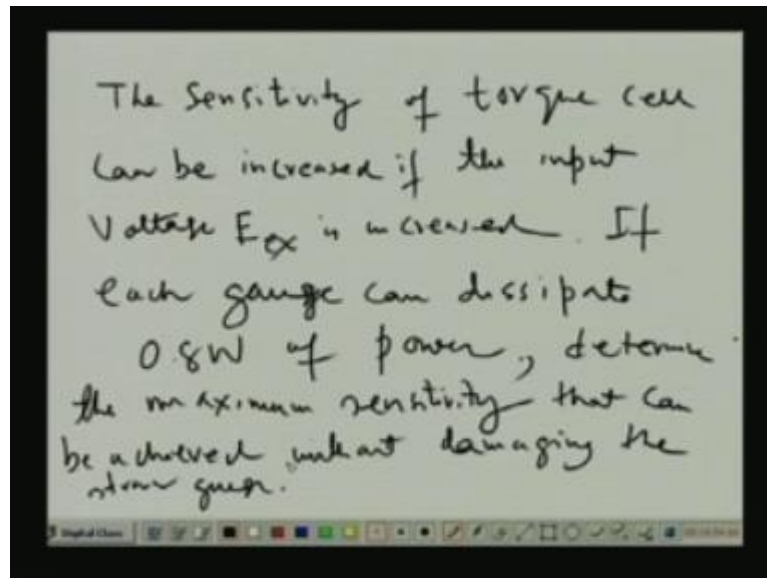 The Sensitivity of torque cell
can be increased if the input
Voltage Eex is increased. If
each gauge can dissipate
0.8W of power, determine
the maximum sensitivity that can
be achieved without damaging the
strain gauge.